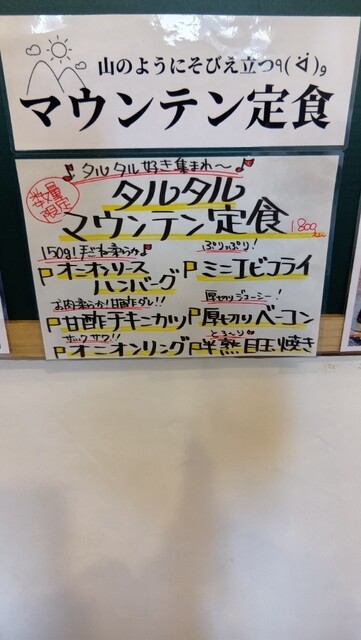 山のようにそびえ立つ٩( ᐛ )و
マウンテン定食
♪タルタル好き集まれ〜♪
数量
限定
タルタル
マウンテン定食
150g!手ごね柔らか♪
オニオンソース
ハンバーグ
ぷりっぷり!
ミニエビフライ
お肉柔らか!甘酢ダレ!!
甘酢チキンカツ
厚切りジューシー!
厚切りベーコン
サックサク!!
オニオンリング
とろ〜り
半熟目玉焼き